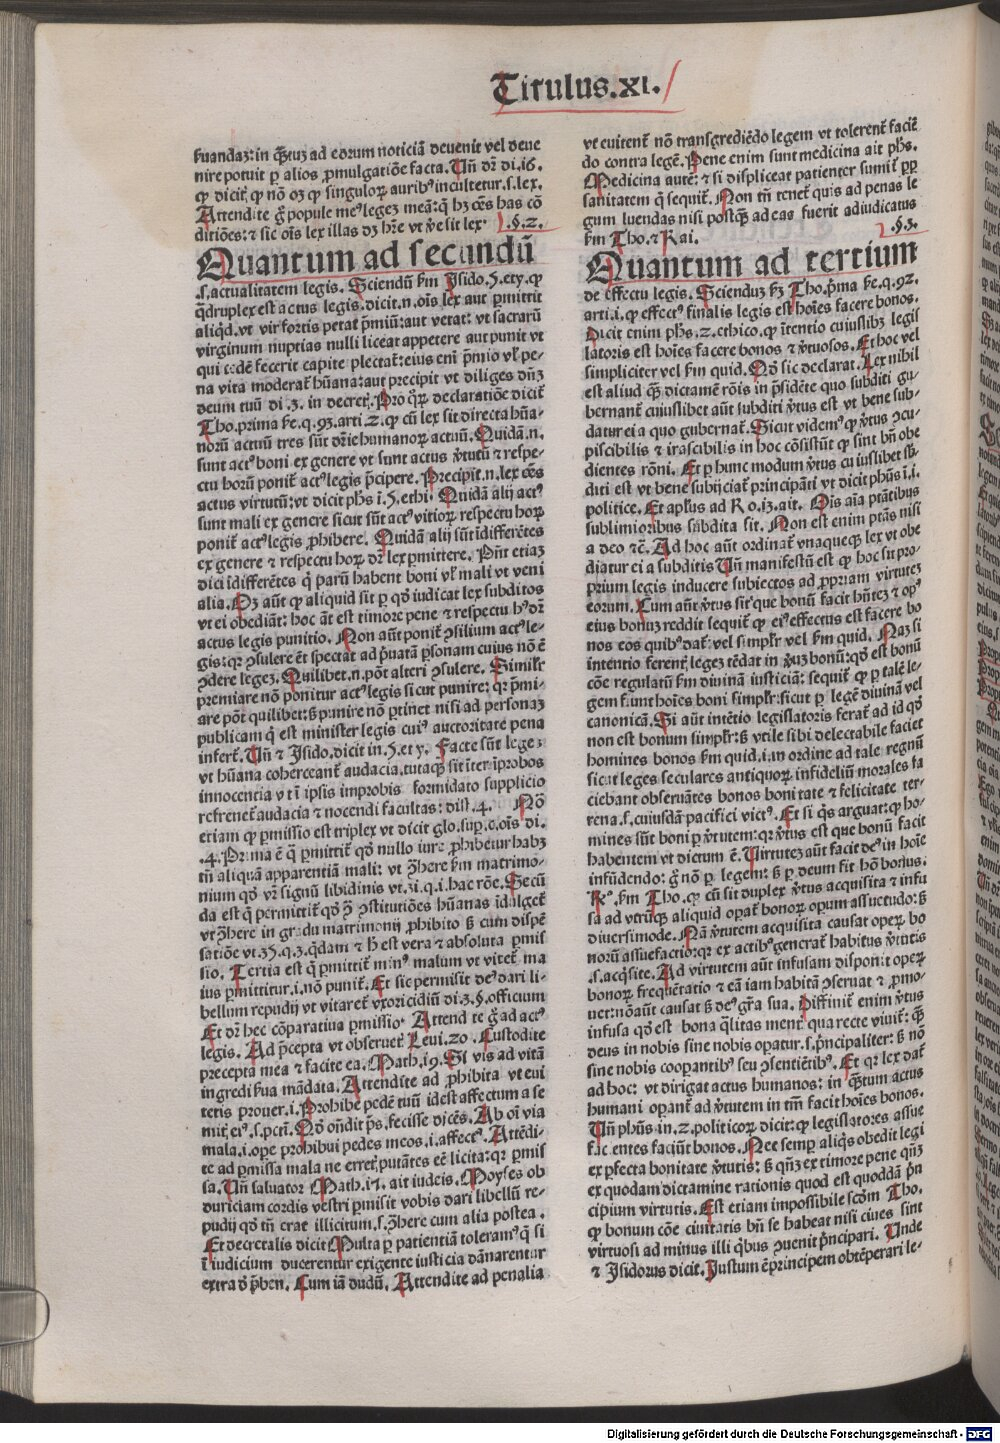 Titulus.xi.
ẜuandaꝫ: in q̃ꝫtuꝫ ad eorum noticiã deuenit vel deue
nire potuit ꝑ alios ꝓmulgatiõe facta. Uñ dr̃ di.16.
ꝙ dicit̃ ꝙ nõ oꝫ ꝙ singuloꝝ aurib⁹ inculcetur.s.lex.
Attendite g̃ popule me⁹ legeꝫ meã: q̃ hꝫ oẽs has cõ
ditiões: ⁊ sic oĩs lex illas dꝫ hr̃e vt ṽe sit lex. .§.2.
Quantum ad secundũ
.s.actualitatem legis. Sciendũ ẜm Isido.5.ety.ꝙ
q̃druplex est actus legis. dicit.n.oĩs lex aut ꝑmittit
aliqd̃. vt vir fortis petat p̃miũ: aut vetat: vt sacrarũ
virginum nuptias nulli liceat appetere aut punit vt
qui cedẽ fecerit capite plectat̃: eius eni ̃ p̃mio vl̃ pe-
na vita moderat̃ hũana: aut precipit vt diliges dñꝫ
deum tuũ di.3. in decret̃. Pro q̃ꝝ declaratiõe dicit̃
Tho.prima ẜe.q.93.arti.2.ꝙ cũ lex sit directa hũa-
norũ actuũ tres sũt dr̃ie humanoꝝ actuũ. Quidã.n.
sunt act⁹ boni ex genere vt sunt actus ṽtutũ ⁊ respe-
ctu horũ ponit̃ act⁹ legis p̃cipere. Precipit.n.lex oẽs
actus virtutũ: vt dicit phs ĩ.5.ethi. Quidã alij act⁹
sunt mali ex genere sicut sũt act⁹ vitioꝝ respectu hoꝝ
ponit̃ act⁹ legis ꝓhibere. Quidã alij sũt ĩdifferẽtes
ex genere ⁊ respectu hoꝝ dr̃ lex ꝑmittere. Pñt etiaꝫ
dici ĩdifferẽtes q̃ parũ habent boni vl̃ mali vt veni
alia. Oꝫ aũt ꝙ aliquid sit ꝑ qd̃ iudicat lex subditos
vt ei obediãt: hoc ãt est timore pene ⁊ respectu h⁹ dr̃
actus legis punitio. Non aũt ponit̃ ꝯsilium act⁹ le-
gis: qꝛ ꝯsulere ẽt spectat ad p̃uatã ꝑsonam cuius nõ ẽ
ꝯdere legeꝫ. Quilibet.n.põt alteri ꝯsulere. Similr̃
premiare nõ ponitur act⁹ legis sicut punire: qꝛ p̃mi-
are põt quilibet: ß punire nõ ꝑtinet nisi ad personaꝫ
publicam q̃ est minister legis cui⁹ auctoritate pena
infert̃. Uñ ⁊ Isido.dicit in.5.ety. Facte sũt legeꝫ
vt hũana coherceant̃ audacia.tutaqꝫ sit ĩter ĩprobos
innocentia vt ĩ ipsis improbis formidato supplicio
refrenet̃ audacia ⁊ nocendi facultas: dist.4. Nõ
etiam ꝙ ꝑmissio est triplex vt dicit glo.sup̃.c.oĩs di.
.4. Prima ẽ q̃ ꝑmittit̃ qd̃ nullo iure ꝓhibetur habꝫ
tñ aliquã apparentiã mali: vt ꝯ̃here ẜm matrimo-
nium qd̃ vr̃ signũ libidinis vt.31.q.i.hac rõe. Secũ
da est q̃ ꝑmittit̃ qd̃ ꝯ̃ ꝯstitutiões hũanas ĩdulgẽt
vt ꝯ̃here in gradu matrimonij ꝓhibito ß cum dispẽ
satiõe vt.35.q.3.q̃dam ⁊ h̃ est vera ⁊ absoluta ꝑmis
sio. Tertia est q̃ ꝑmittit̃ min⁹ malum vt vitet̃ ma
ius ꝑmittitur.i.nõ punit̃. Et sic permisit de⁹ dari li-
bellum repudij vt vitaret̃ vxoricidiũ di.3.§.officium
Et dr̃ hec cõparatiua ꝑmissio. Attendite g̃ ad act⁹
legis. Ad p̃cepta vt obseruet̃ Leui.20. Custodite
precepta mea ⁊ facite ea. Math.19. Si vis ad vitã
ingredi ẜua mãdata. Attendite ad ꝓhibita vt eui
tetis prouer.i. Prohibe pedẽ tuũ idest affectum a se
mit̃ ei⁹.s.pctĩ. Qd̃ on̄dit p̃s.fecisse dicẽs. Ab oĩ via
mala.i.ope prohibui pedes meos.i.affect⁹. Attẽdi-
te ad ꝑmissa mala ne erret̃ putãtes eẽ licita: qꝛ ꝑmis
sa. Uñ saluator Math.19. ait iudeis. Moyses ob
duriciam cordis vestri ꝑmisit vobis dari libellũ re-
pudij qd̃ tñ erat illicitum.s.ꝯ̃here cum alia postea.
Et decretalis dicit Multa ꝑ patientiã tolerant̃ q̃ si
ĩ iudicium ducerentur exigente iusticia dãnarentur
extra d̃ p̃ben. Cum iã dudũ. Attendite ad penalia
vt euitent̃ nõ transgrediẽdo legem vt tolerent̃ faciẽ
do contra legẽ. Pene enim sunt medicina ait phs.
Medicina autẽ: ⁊ si displiceat patienter sumit̃ ꝓp
sanitatem q̃ sequit̃. Non tñ tenet̃ quis ad penas le
gum luendas nisi postq̃ꝫ ad eas fuerit adiudicatus
ẜm Tho.⁊ Rai. .§.3.
Quantum ad tertium
de effectu legis. Sciendũ ẜꝫ Tho.p̃ma ẜe.q.92.
arti.i.ꝙ effect⁹ finalis legis est hoĩes facere bonos.
Dicit enim phs.2.ethico.ꝙ ĩtentio cuiuslibꝫ legis
latoris est hoĩes facere bonos ⁊ ṽtuosos. Et hoc vel
simpliciter vel ẜm quid. Qd̃ sic declarat̃. Lex nihil
est aliud q̃ꝫ dictamẽ rõis in p̃sidẽte quo subditi gu-
bernant̃ cuiuslibet aũt subditi ṽtus est vt bene sub-
datur ei a quo gubernat̃. Sicut videm⁹ ꝙ ṽtus ꝯcu-
piscibilis ⁊ irascibilis in hoc cõsistũt ꝙ sint bñ obe
dientes rõni. Et ꝑ hunc modum ṽtus cuiuslibet sb̃-
diti est vt bene subijciat̃ principãti vt dicit phũs ĩ.i.
politice. Et apl̃us ad Ro.13.ait. Ois aĩa ptãtibus
sublimioribus sũbdita sit. Non est enim ptãs nisi
a deo ⁊c̃. Ad hoc aũt ordinat̃ vnaqueqꝫ lex vt obe
diatur ei a subditis Uñ manifestũ est ꝙ hoc sit pro-
prium legis inducere subiectos ad ꝓpriam virtuteꝫ
eorum. Cum aũt ṽtus sit que bonũ facit hñteꝫ ⁊ op⁹
eius bonuꝫ reddit sequit̃ ꝙ ei⁹ effectus est facere bo
nos eos quib⁹ dat̃: vel simplr̃ vel ẜm quid. Naꝫ si
intentio ferent̃ legeꝫ tẽdat in ṽuꝫ bonũ: qd̃ est bonũ
cõe regulatũ ẜm diuinã iusticiã: sequit̃ ꝙ ꝑ talẽ le-
gem fiunt hoĩes boni simplr̃: sicut ꝑ legẽ diuinã vel
canonicã. Si aũt intẽtio legislatoris ferat̃ ad id qd̃
non est bonum simplr̃: ß vtile sibi delectabile faciet
homines bonos ẜm quid.i.in ordine ad tale regnũ
sicut leges seculares antiquoꝝ infideliũ morales fa
ciebant obseruãtes bonos bonitate ⁊ felicitate ter-
rena.s.cuiusdã pacifici vict⁹. Et si q̃s arguat: ꝙ ho-
mines sũt boni ꝑ ṽtutem: qꝛ ṽtus est que bonũ facit
habentem vt dictum ẽ. Uirtuteꝫ aũt facit de⁹ in hoĩe
infũdendo: g̃ nõ ꝑ legem: ß ꝑ deum fit hõ bonus.
R⁰.ẜm Tho.ꝙ cũ sit duplex ṽtus acquisita ⁊ infu
sa ad vtrũqꝫ aliquid opat̃ bonoꝝ opum assuetudo: ß
diuersimode. Nã ṽtutem acquisita causat opeꝝ bo
norũ assuefactio: qꝛ ex actib⁹ generat̃ habitus ṽtutis
.s.acq̃site. Ad virtutem aũt infusam disponit opeꝝ
bonoꝝ frequẽtatio ⁊ eã iam habitã ꝯseruat ⁊ ꝓmo-
uet: nõ aũt causat ß de⁹ gr̃a sua. Diffinit̃ enim ṽtus
infusa qd̃ est bona q̃litas ment̃ qua recte viuit̃: q̃ꝫ
deus in nobis sine nobis opatur.s.p̃ncipaliter: ß nõ
sine nobis coopantib⁹ seu ꝯsentiẽtib⁹. Et qꝛ lex dat̃
ad hoc: vt dirigat actus humanos: in q̃ꝫtum actus
humani opant̃ ad ṽtutem in tm̃ facit hoĩes bonos.
Uñ phũs in.2.politicoꝝ dicit: ꝙ legislatores assue
facientes faciũt bonos. Nec semp aliq̃s obedit legi
ex ꝑfecta bonitate ṽtutis: ß qñqꝫ ex timore pene qñqꝫ
ex quodam dictamine rationis quod est quoddã p̃n
cipium virtutis. Est etiam impossibile scdm̃ Tho.
ꝙ bonum cõe ciuitatis bñ se habeat nisi ciues sint
virtuosi ad minus illi q̃bus ꝯuenit p̃ncipari. Unde
⁊ Isidorus dicit. Justum ẽ principem obtẽperari le-
Digitalisierung gefördert durch die Deutsche Forschungsgemeinschaft - DFG